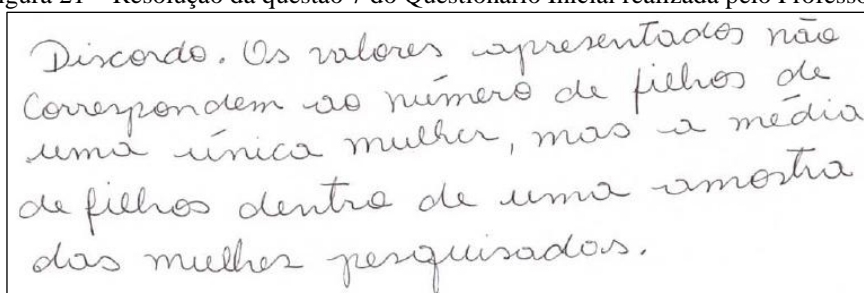 igura 21 – Resolução da questão 7 do Questionário Inicial realizada pelo Professo
Discordo. Os valores apresentados não
correspondem ao número de filhos de
uma única mulher, mas a média
de filhos dentro de uma amostra
das mulher pesquisadas.